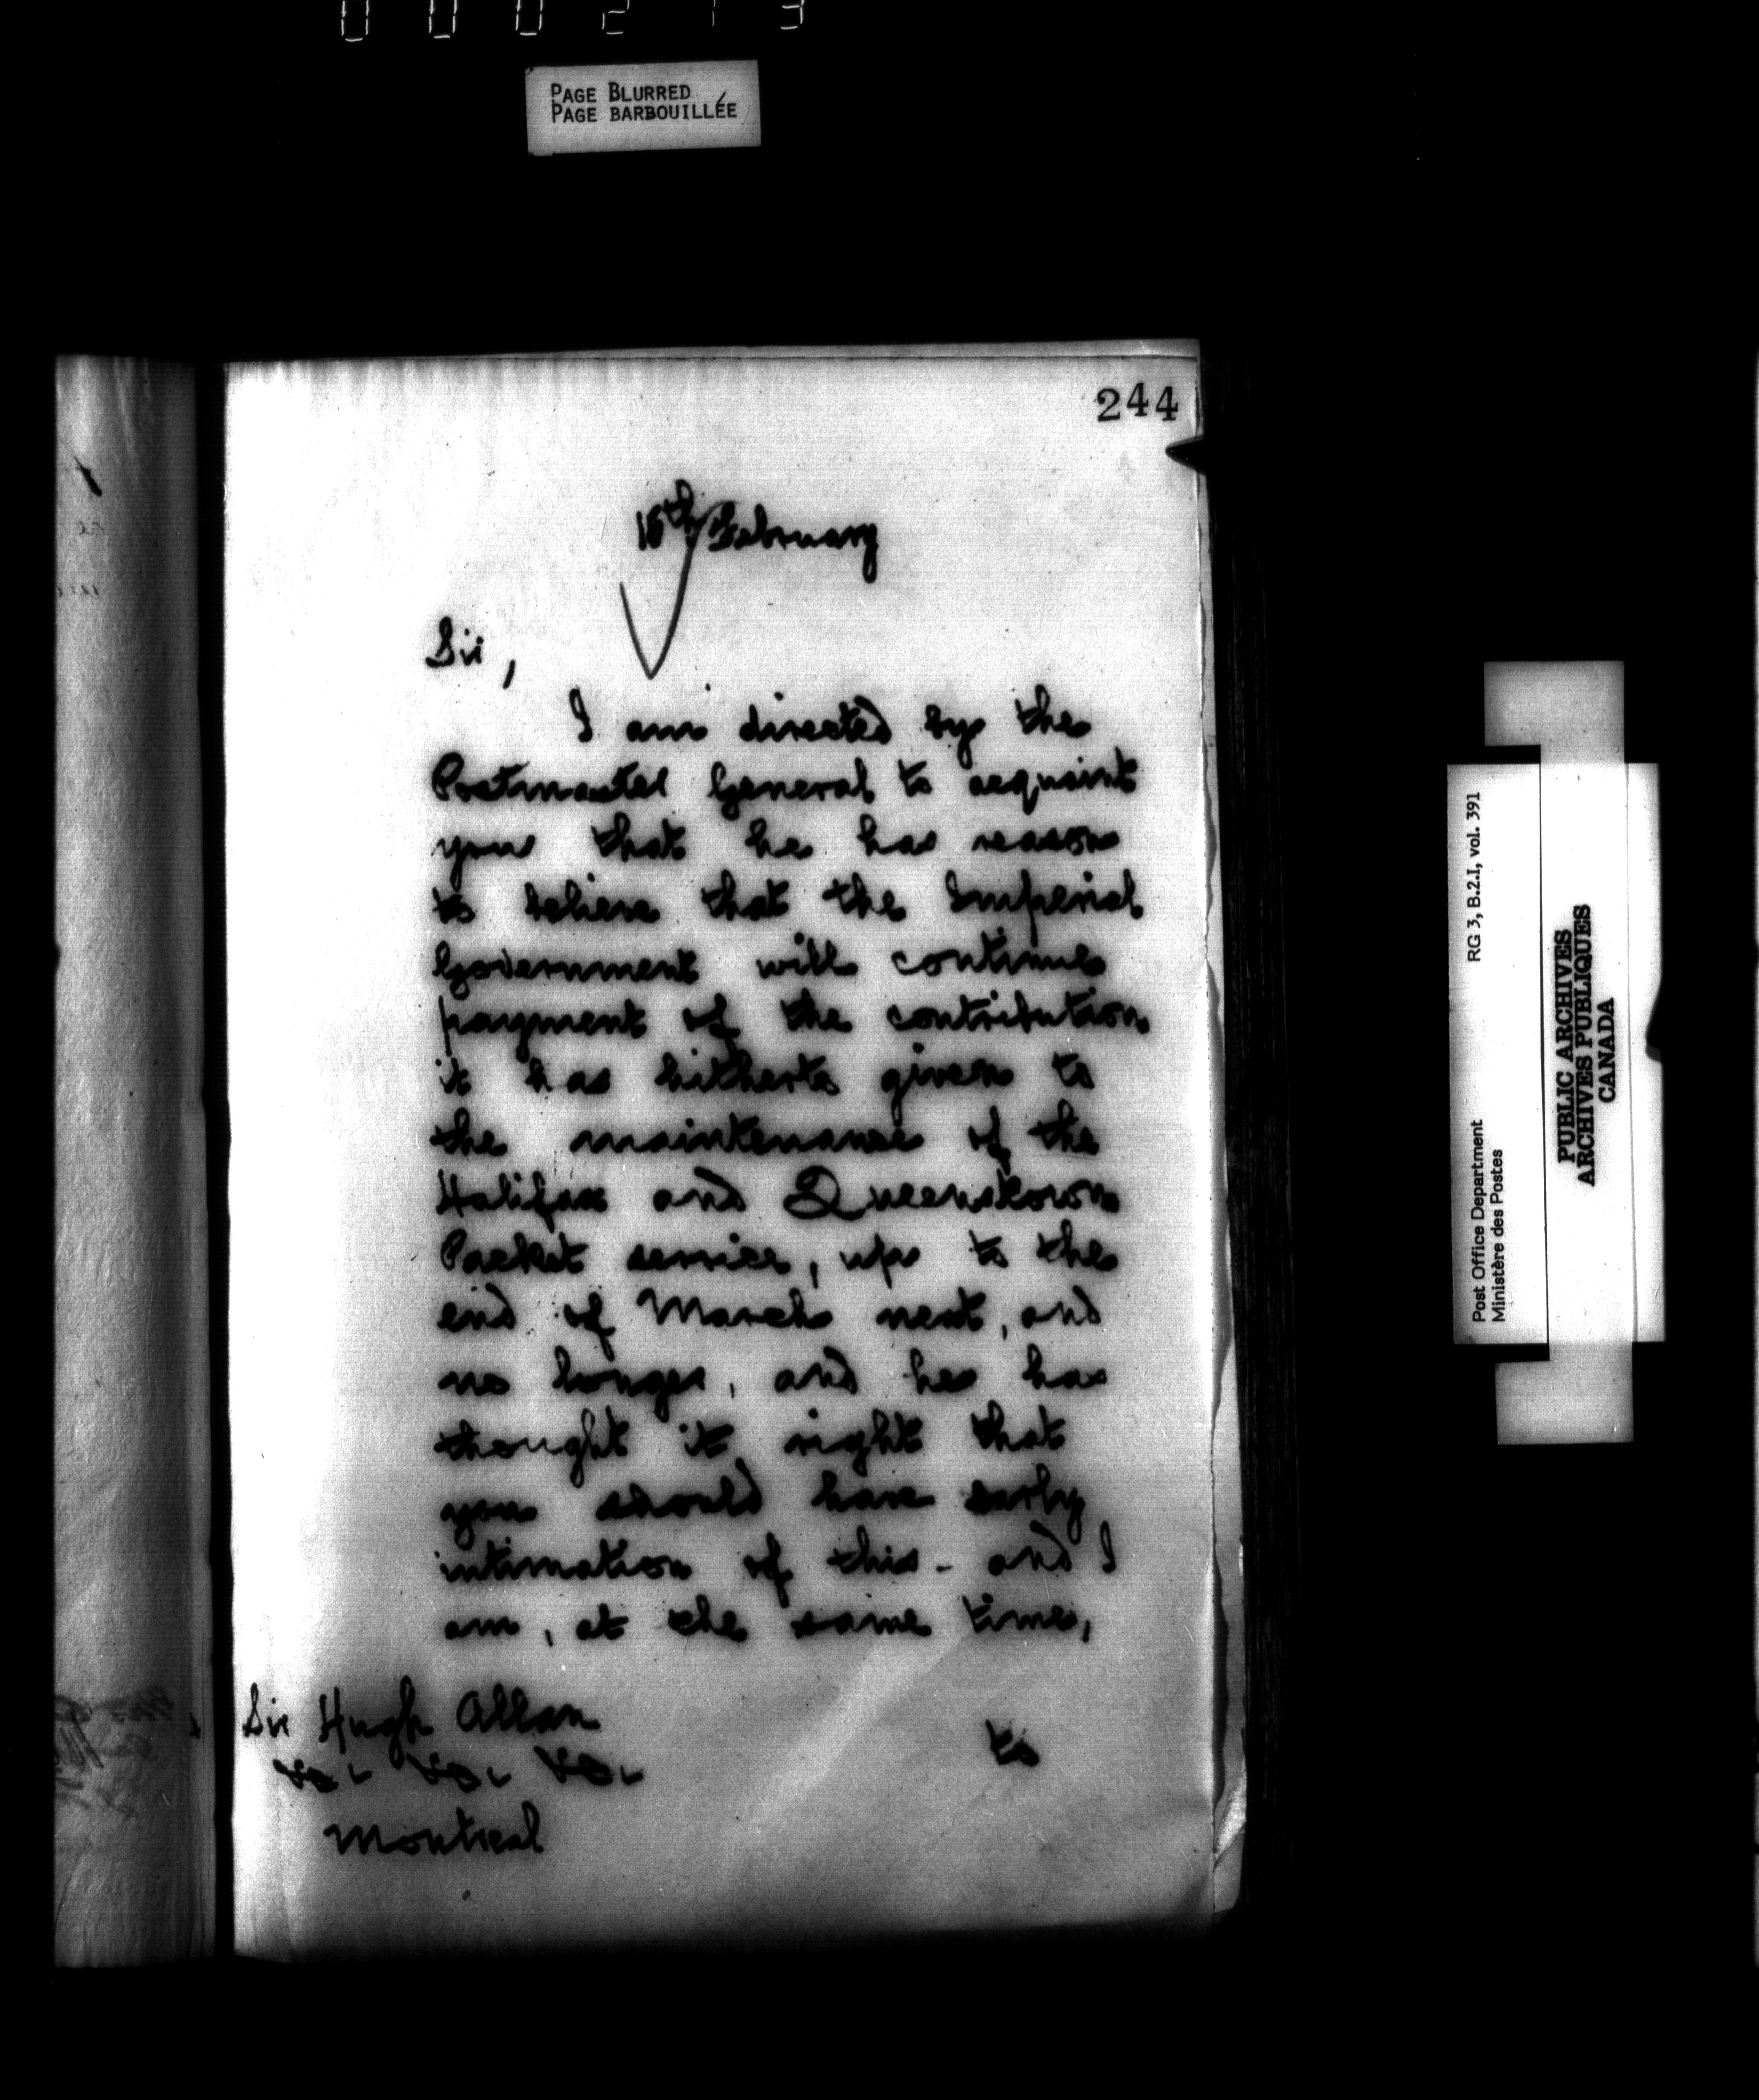 PAGE BLURRED
PAGE BARBOUILLÉE
244
February
Sir,
I am directed by the
Postmaster General to acquaint
you that he has reason
to believe that the Imperial
Government will continue
payment of the contribution
it has hitherto given to
the maintenance of the
Halifax and Queenstown
Packet service, up to the
end of March next, and
no longer, and he has
thought it right that
you should have early
intimation of this - and I
am, at the same time,
Sir Hugh Allan
to
Montreal
Post Office Department RG 3, B.2.I, vol. 391
Ministère des Postes
PUBLIC ARCHIVES
ARCHIVES PUBLIQUES
CANADA